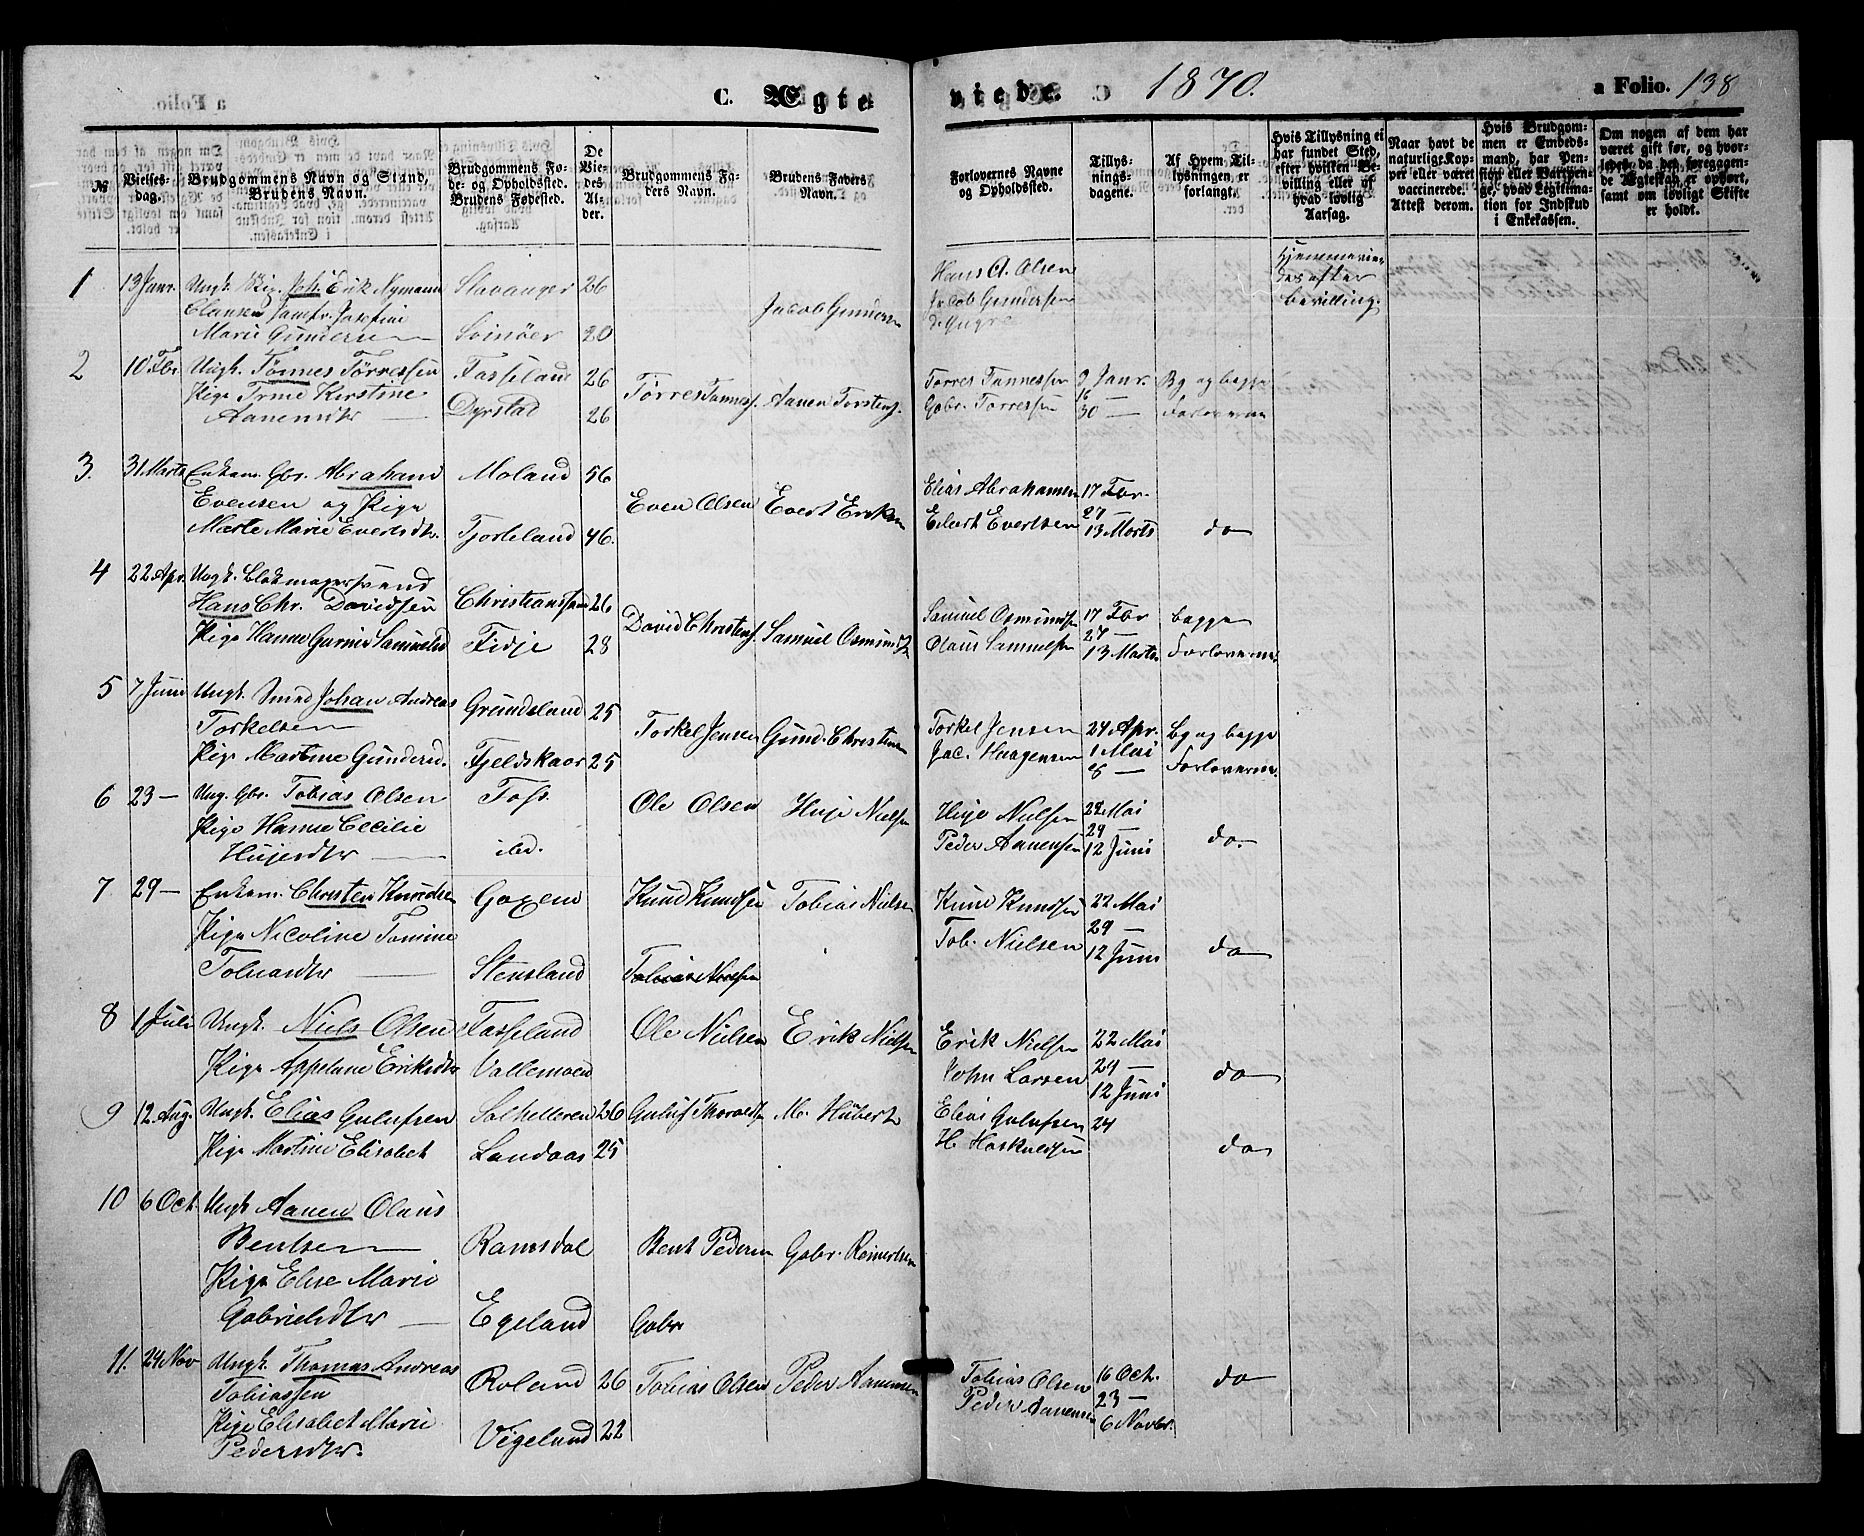 C. Ægte
viede.
1870.
a Folio. 138
№
Vielses-dag.
Brudgommens Navn og Stand, Brudens Navn.
Brudgommens Fø-de- og Opholdssted. Brudens Fødested.
De Viedes Alder.
Brudgommens Fa-ders Navn.
Brudens Faders Navn.
Forlovernes Navne og Opholdssted.
Tillys-nings-dagene.
Af Hvem Til-lysningen er forlangt.
Hvis Tillysning ei har fundet Sted, efter hvilken Be-villing eller af hvad lovlig Aarsag.
Naar havt de naturlige Kop-per eller været vaccinerede. Attest derom.
Hvis Brudgom-men er Embeds-mand, har Pen-sion eller Vartpen-ge, hvad Legitima-tion for Indskud i Enkekassen.
Om nogen af dem har været gift før, og hvor-ledes da det foregagen-de Ægteskab er ophørt, samt om lovligt Skifte er holdt.
1 13 Janr. Ungk. Joh. Erik Nymann Stavanger 26 Hans A. Olsen Hjemmevie-
Clausen Jomfr. Josefine Jacob Gundersen Jacob Gundersen des efter
Marie Gundersen Svinöer 20 bevilling.
2 10 Fbr. Ungk. Tønnes Tørressen Fasseland 26 Tørres Tønness. Aanen Torstens. Tørres Tønnessen 9 Janr. Bg og begge
Pige Trine Kirstine Gabr. Tørressen 16 Forloverne
Aanensdtr Dyrstad 26 30 —
3. 31. Marts Enkem. Gbr. Abraham Moland 56 Even Olsen Evert Eriksen Elias Abrahamsen 17 Fbr.
Evensen og Pige 27 —
Marte Marie Evertsdtr. Tjorteland 46. Edert Evertsen 13 Marts do
4 22 Apr. Ungk. Blokmagersvend
Hans Chr. Davidsen Christianssand 26 David Christens. Samuel Osmunds. Samuel Osmunds 17 Fbr begge
27 —
Pige Hanne Gurine Samuelsd Fidje 28 Olaus Samuelsen 13 Marts Forloverne.
5 7 Juni Ungk. Smed Johan Andreas Grundeland 25 Torkel Jensen Gund. Christens Torkel Jensen 24 Apr. Bg og begge
Torkelsen 1 Mai
Pige Martine Gundersd. Fjeldskaar 25 Jac. Haagensen 8 — Forloverne.
6 23 — Ung. Gbr. Tobias Olsen Foss. Ole Olsen Huje Nielsen Huje Nielsen 22 Mai
Pige Hanne Cecilie 29 — do.
Hujesdtr ibd. Peder Aanensen 12 Juni
7 29 — Enkem. Christen Knudsen Goxem Knud Knudsen Tobias Nielsen Knud Knudsen 22 Mai
Pige Nicoline Tomine Tob. Nielsen 29 — do
Tobiasdtr Stensland Tobias Nielsen 12 Juni
8 1 Juli Ungk. Niels Olsen Fasseland Ole Nielsen Erik Nielsen Erik Nielsen 22 Mai
29 — do
Pige Appelone Eriksdtr Vallemoen John Larsen 12 Juni
9 12 Aug. Ungk. Elias Gulufsen 26 Guluf Thorvalds M. Hübert Elias Gulufsen 24
Pige Martine Elisabet Landaas 25 H. Haskuldsen do
10 6 Oct. Ungk Aanen Olaus
Bentsen Ramsdal Bent Pedersen Gabr. Reinertsen
Pige Elise Marie
Gabrielsdtr Egeland Gabr
11. 24 Nov Ungk. Thomas Andreas Roland 26 Tobias Olsen Peder Aanensen Tobias Olsen 16 Oct. do
Tobiassen Peder Aanensen 23 —
Pige Elisabet Marie Vigeland 22 6 Novbr.
Pedersdtr.